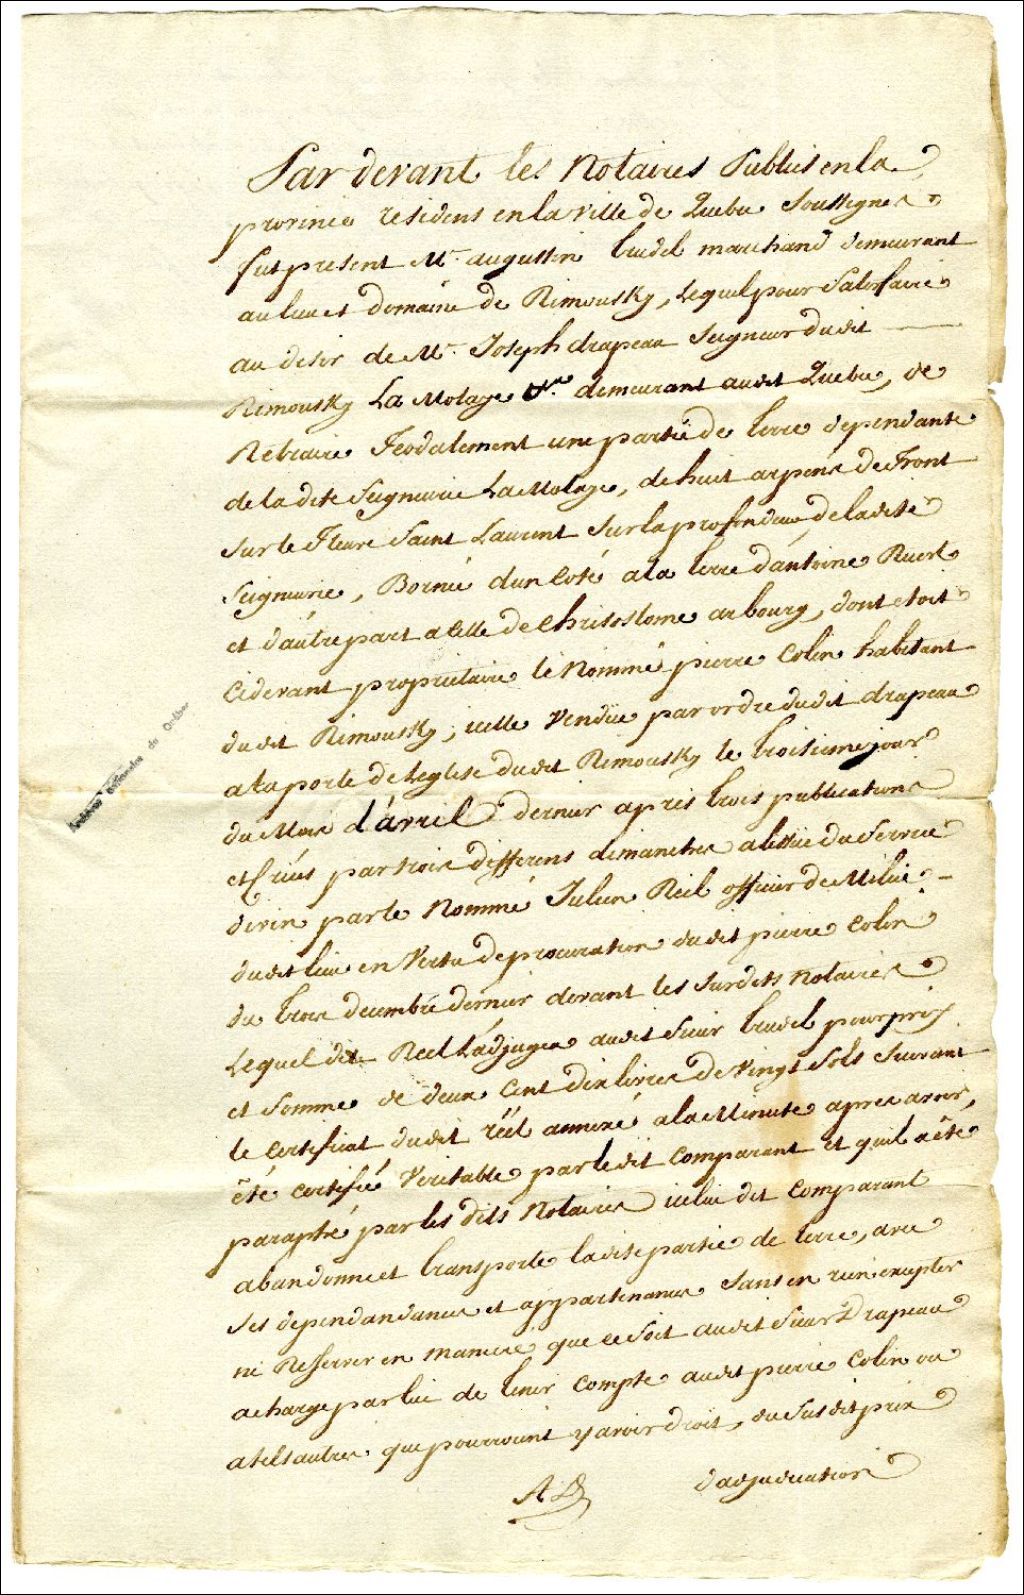 Par devant les Notaires Publics en la
province residens en la ville de Quebec Soussignes
fut present Mr. augustin trudel marchand demeurant
au lieu et domaine de Rimousky, lequel pour Satisfaire
au desir de Mr. Joseph drapeau Seigneur dudit
Rimousky La Molaye &ra. demeurant audit Quebec, de
Retraire Feodalement une partie de terre dependante
de la dite Seigneurie La Molaye, de huit arpens de Front
Sur le Fleuve Saint Laurent Sur la profondeur de ladite
Seigneurie, Bornée d'un Coté a la terre d'antoine Ruest
et d'autre part a celle de Chrisostome arbourg, dont etoit
Cidevant proprietaire le Nommé pierre Colin habitant
dudit Rimousky, icelle vendüe par ordre dudit drapeau
a la porte de l'eglise dudit Rimousky le troisieme jour
du Mois d'avril dernier apres trois publications
et Criées par trois differens dimanches a l'issüe du Service
divin par le Nommé Julien Reil officier de Milice
dudit lieu en vertu de procuration dudit pierre Colin
du trois decembre dernier devant les Surdits Notaires
Lequel dit Reel L'adjugea audit Sieur trudel pour prix
et Somme de deux Cent dix livres de vingt Sols Suivant
le Certificat dudit réel annexé a la Minute apres avoir,
été certifié Veritable par ledit Comparant et qu'il a été
paraphé par les dits Notaires icelui dit Comparant
abandonne et transporte ladite partie de terre, avec
Ses dependandances et appartenances Sans en rien excepter
ni Reserver en maniere que ce Soit audit Sieur Drapeau
a charge par lui de tenir Compte audit pierre Colin ou
a tels autres que pourroient y avoir droit, du Susdit prix
d'adjudication
AD
Archives nationales du Québec